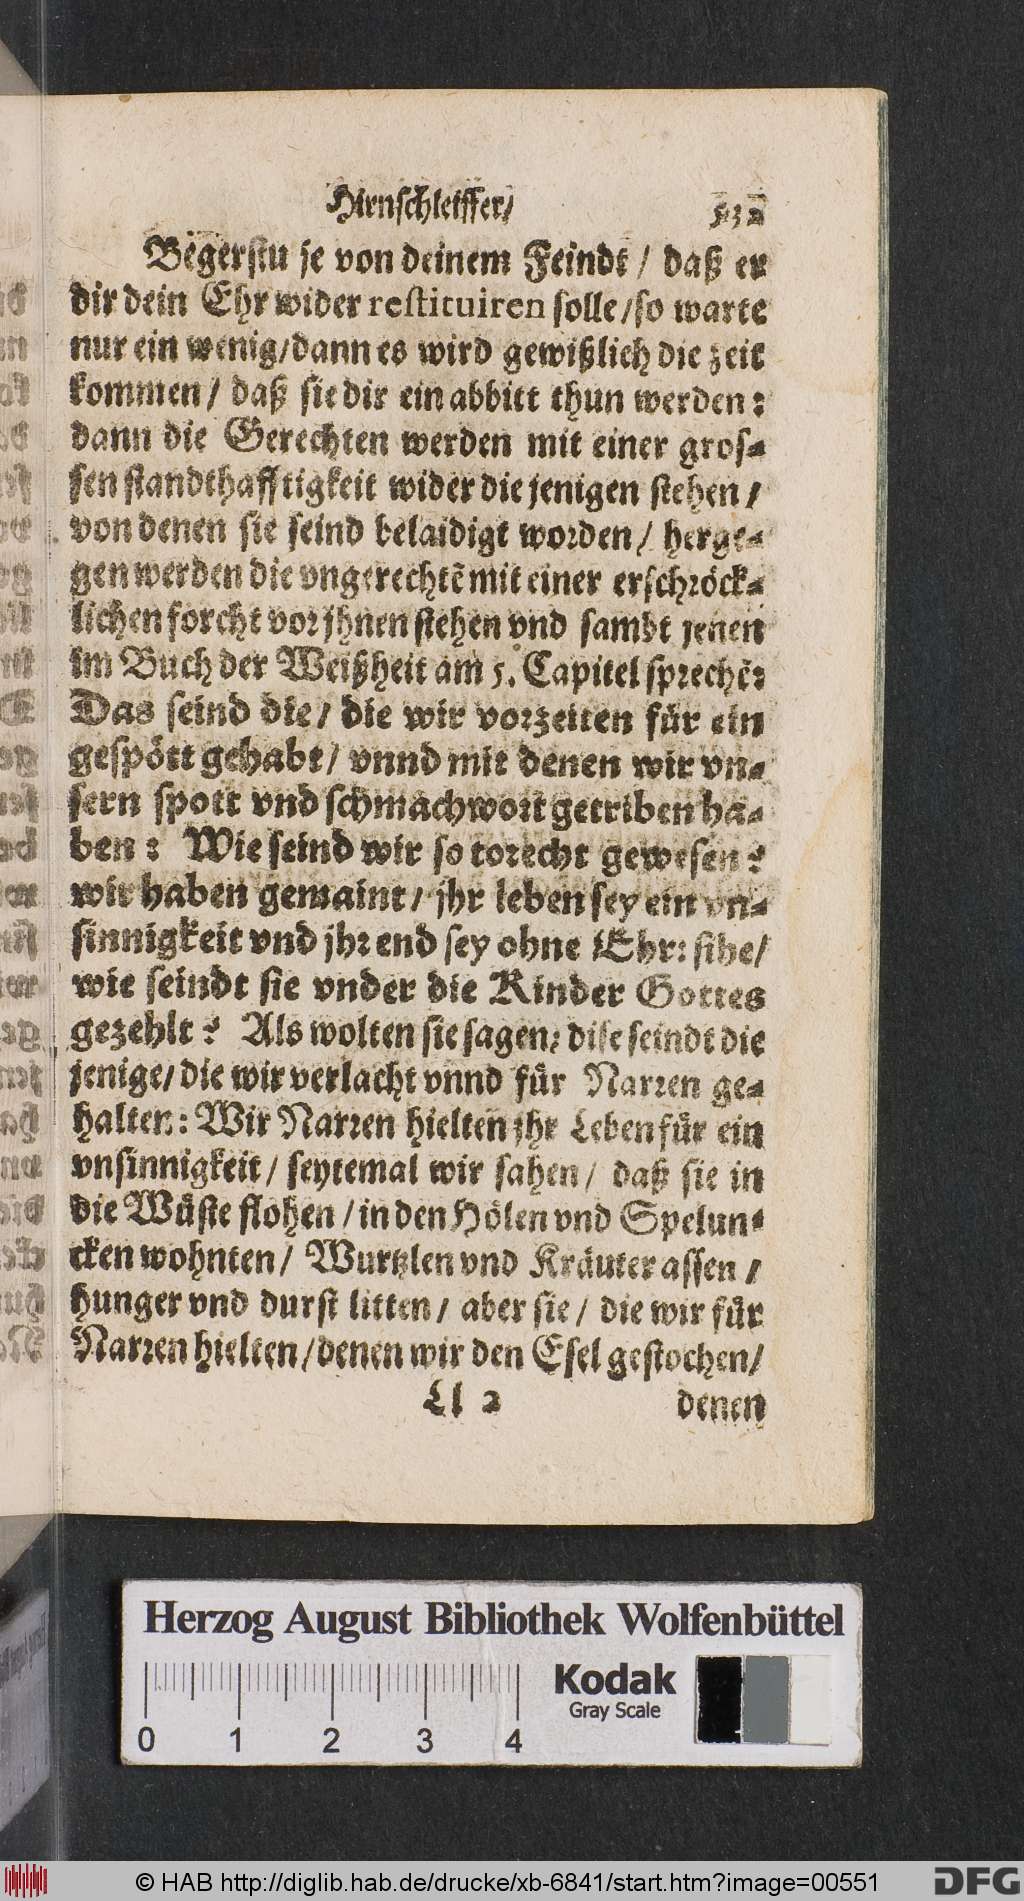 Hirnschleiffer/
Begerstu je von deinem Feindt / daß er
dir dein Ehr wider restituiren solle /so warte
nur ein wenig/dann es wird gewißlich die zeit
kommen / daß sie dir ein abbitt thun werden:
dann die Gerechten werden mit einer gros-
sen standthafftigkeit wider die jenigen stehen /
von denen sie seind belaidigt worden / herge-
gen werden die vngerechtē mit einer erschröck-
lichen forcht vor jhnen stehen vnd sambt jenen
im Buch der Weißheit am 5. Capitel sprechē:
Das seind die / die wir vorzeiten für ein
gespött gehabt / vnnd mit denen wir vn-
sern spott vnd schmachwort getriben ha-
ben : Wie seind wir so torecht gewesen ?
wir haben gemaint / jhr leben sey ein vn-
sinnigkeit vnd jhr end sey ohne Ehr: sihe/
wie seindt sie vnder die Kinder Gottes
gezehlt ? Als wolten sie sagen; dise seindt die
jenige/ die wir verlacht vnnd für Narren ge-
halten : Wir Narren hielten jhr Leben für ein
vnsinnigkeit / seytemal wir sahen / daß sie in
die Wüste flohen / in den Hölen vnd Spelun-
cken wohnten / Wurtzlen vnd Kräuter assen /
hunger vnd durst litten / aber sie / die wir für
Narren hielten /denen wir den Esel gestochen/
Ll 2 denen
Herzog August Bibliothek Wolfenbüttel
Kodak
Gray Scale
0 1 2 3 4
© HAB http://diglib.hab.de/drucke/xb-6841/start.htm?image=00551
DFG